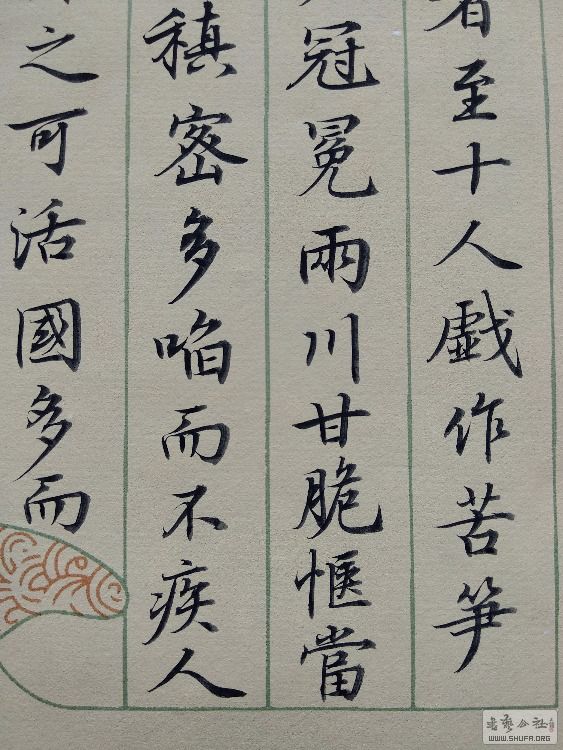 者至十人戲作苦笋
冠冕兩川甘脆惬當
稹密多啗而不疾人
之可活國多而
WWW.SHUFA.ORG